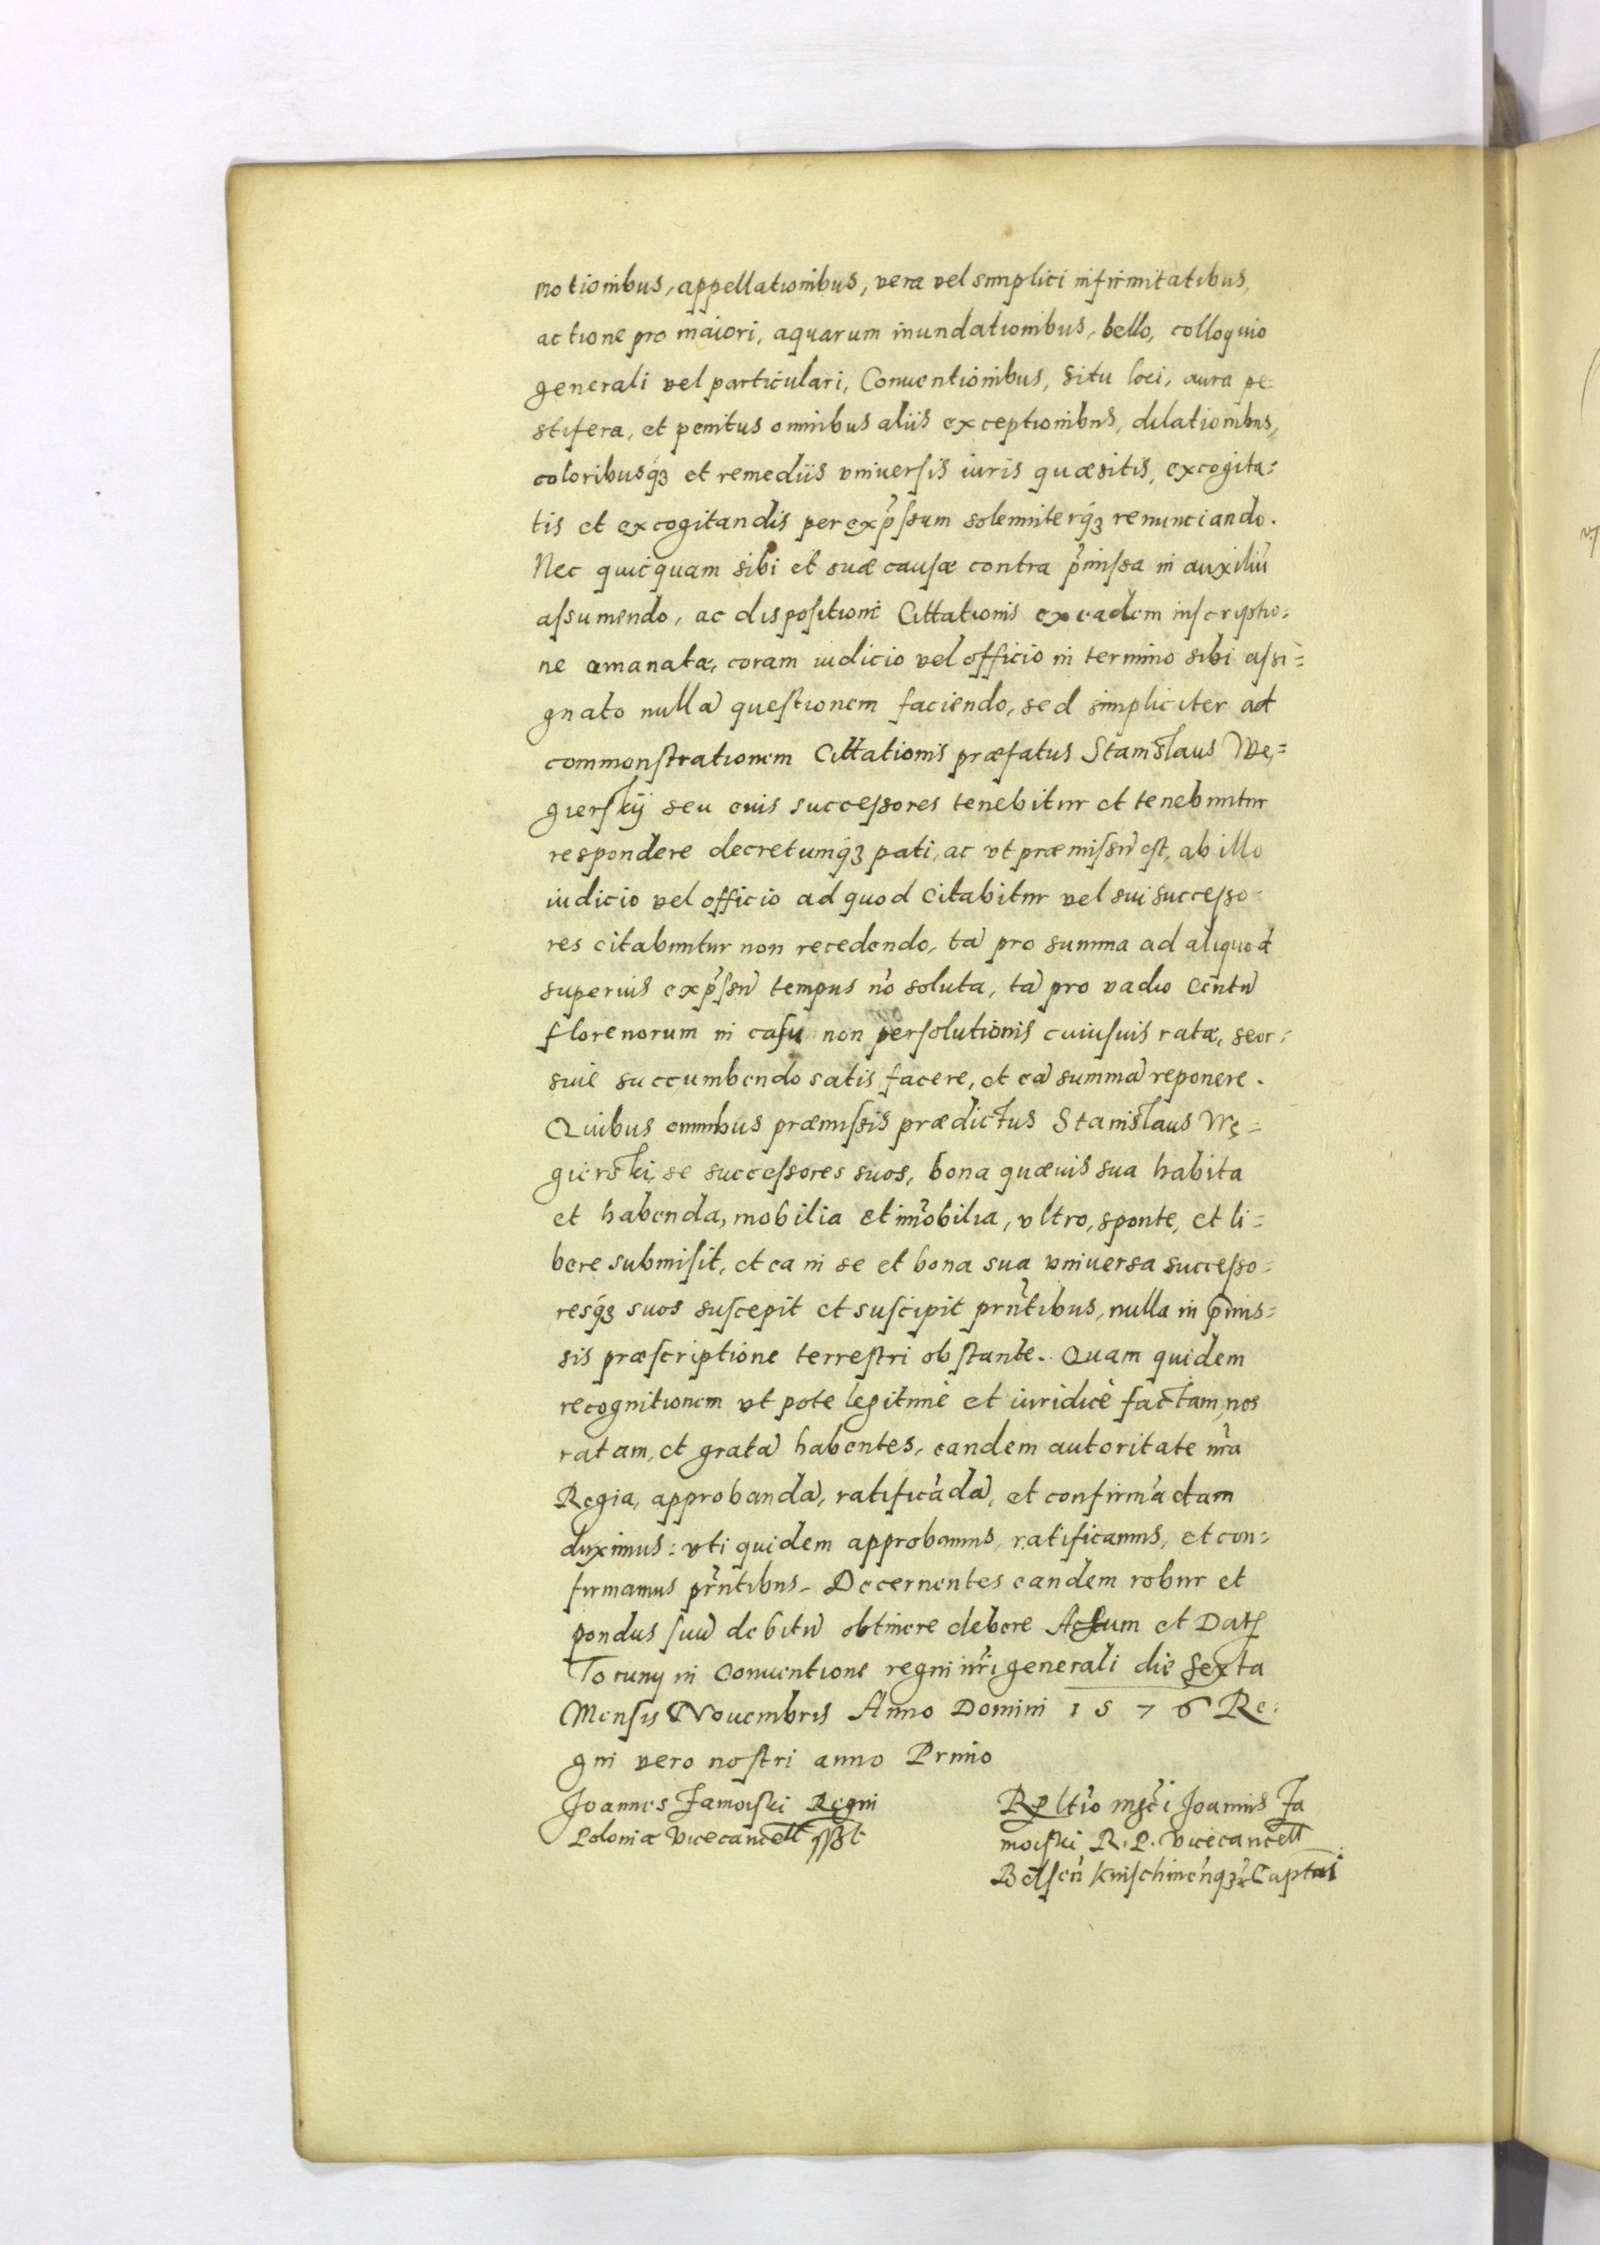 motionibus, appellationibus, vera vel simplici infirmitatibus,
actione pro maiori, aquarum inundationibus, bello, colloquio
generali vel particulari, Conuentionibus, situ loci, aura pe
stifera, et penitus omnibus aliis exceptionibus, dilationibus,
coloribusq́ꝫ et remediis vniuersis iuris quæsitis, excogita=
tis et excogitandis per exp̃ssum solemniterq́ꝫ renunciando.
Nec quicquam sibi et suæ causæ contra p̃missa in auxiliũ
assumendo, ac dispositioni Cittationis ex eadem inscriptio=
ne emanatæ, coram iudicio vel officio in termino sibi assi=
gnato nullã questionem faciendo, sed simpliciter ad
commonstrationem Cittationis præfatus Stanislaus Wę=
gierskij seu eius successores tenebitur et tenebuntur
respondere decretumq́ꝫ pati, ac vt præmissũ est, ab illo
iudicio vel officio ad quod citabitur vel sui successo=
res citabuntur non recedendo, tã pro summa ad aliquod
superius exp̃ssũ tempus nõ soluta, tã pro vadio centũ
florenorum in casu non persolutionis cuiusuis ratæ, seor=
siue succumbendo satis facere, et eã summã reponere.
Quibus omnibus præmissis prædictus Stanislaus Wę=
gierski, se successores suos, bona quæuis sua habita
et habenda, mobilia et im̃obilia, vltro, sponte, et li=
bere submisit, et ea in se et bona sua vniuersa successo=
resq́ꝫ suos suscepit et suscipit pñtibus, nulla in p̃mis=
sis præscriptione terrestri obstante. Quam quidem
recognitionem vt pote legitimè et iuridicè factam, nos
ratam, et gratã habentes, eandem autoritate nr̃a
Regia, approbandã, ratificãdã, et confirmãdam
duximus: vti quidem approbamus, ratificamus, et con=
firmamus pr̃ntibus. Decernentes eandem robur et
pondus suũ debitũ obtinere debere Actum et Datꝭ
Toruny in Conuentione regni nr̃i generali die sexta
Mensis Nouembris Anno Domini 1576 Re=
gni vero nostri anno Primo
Joannes Zamoiski Regni
Poloniæ Vicecancell sszt
Rltĩo mgc̃i Joannis Za
moiski R. P. Vicecancell
Belseñ Knischineñqꝫ Captai